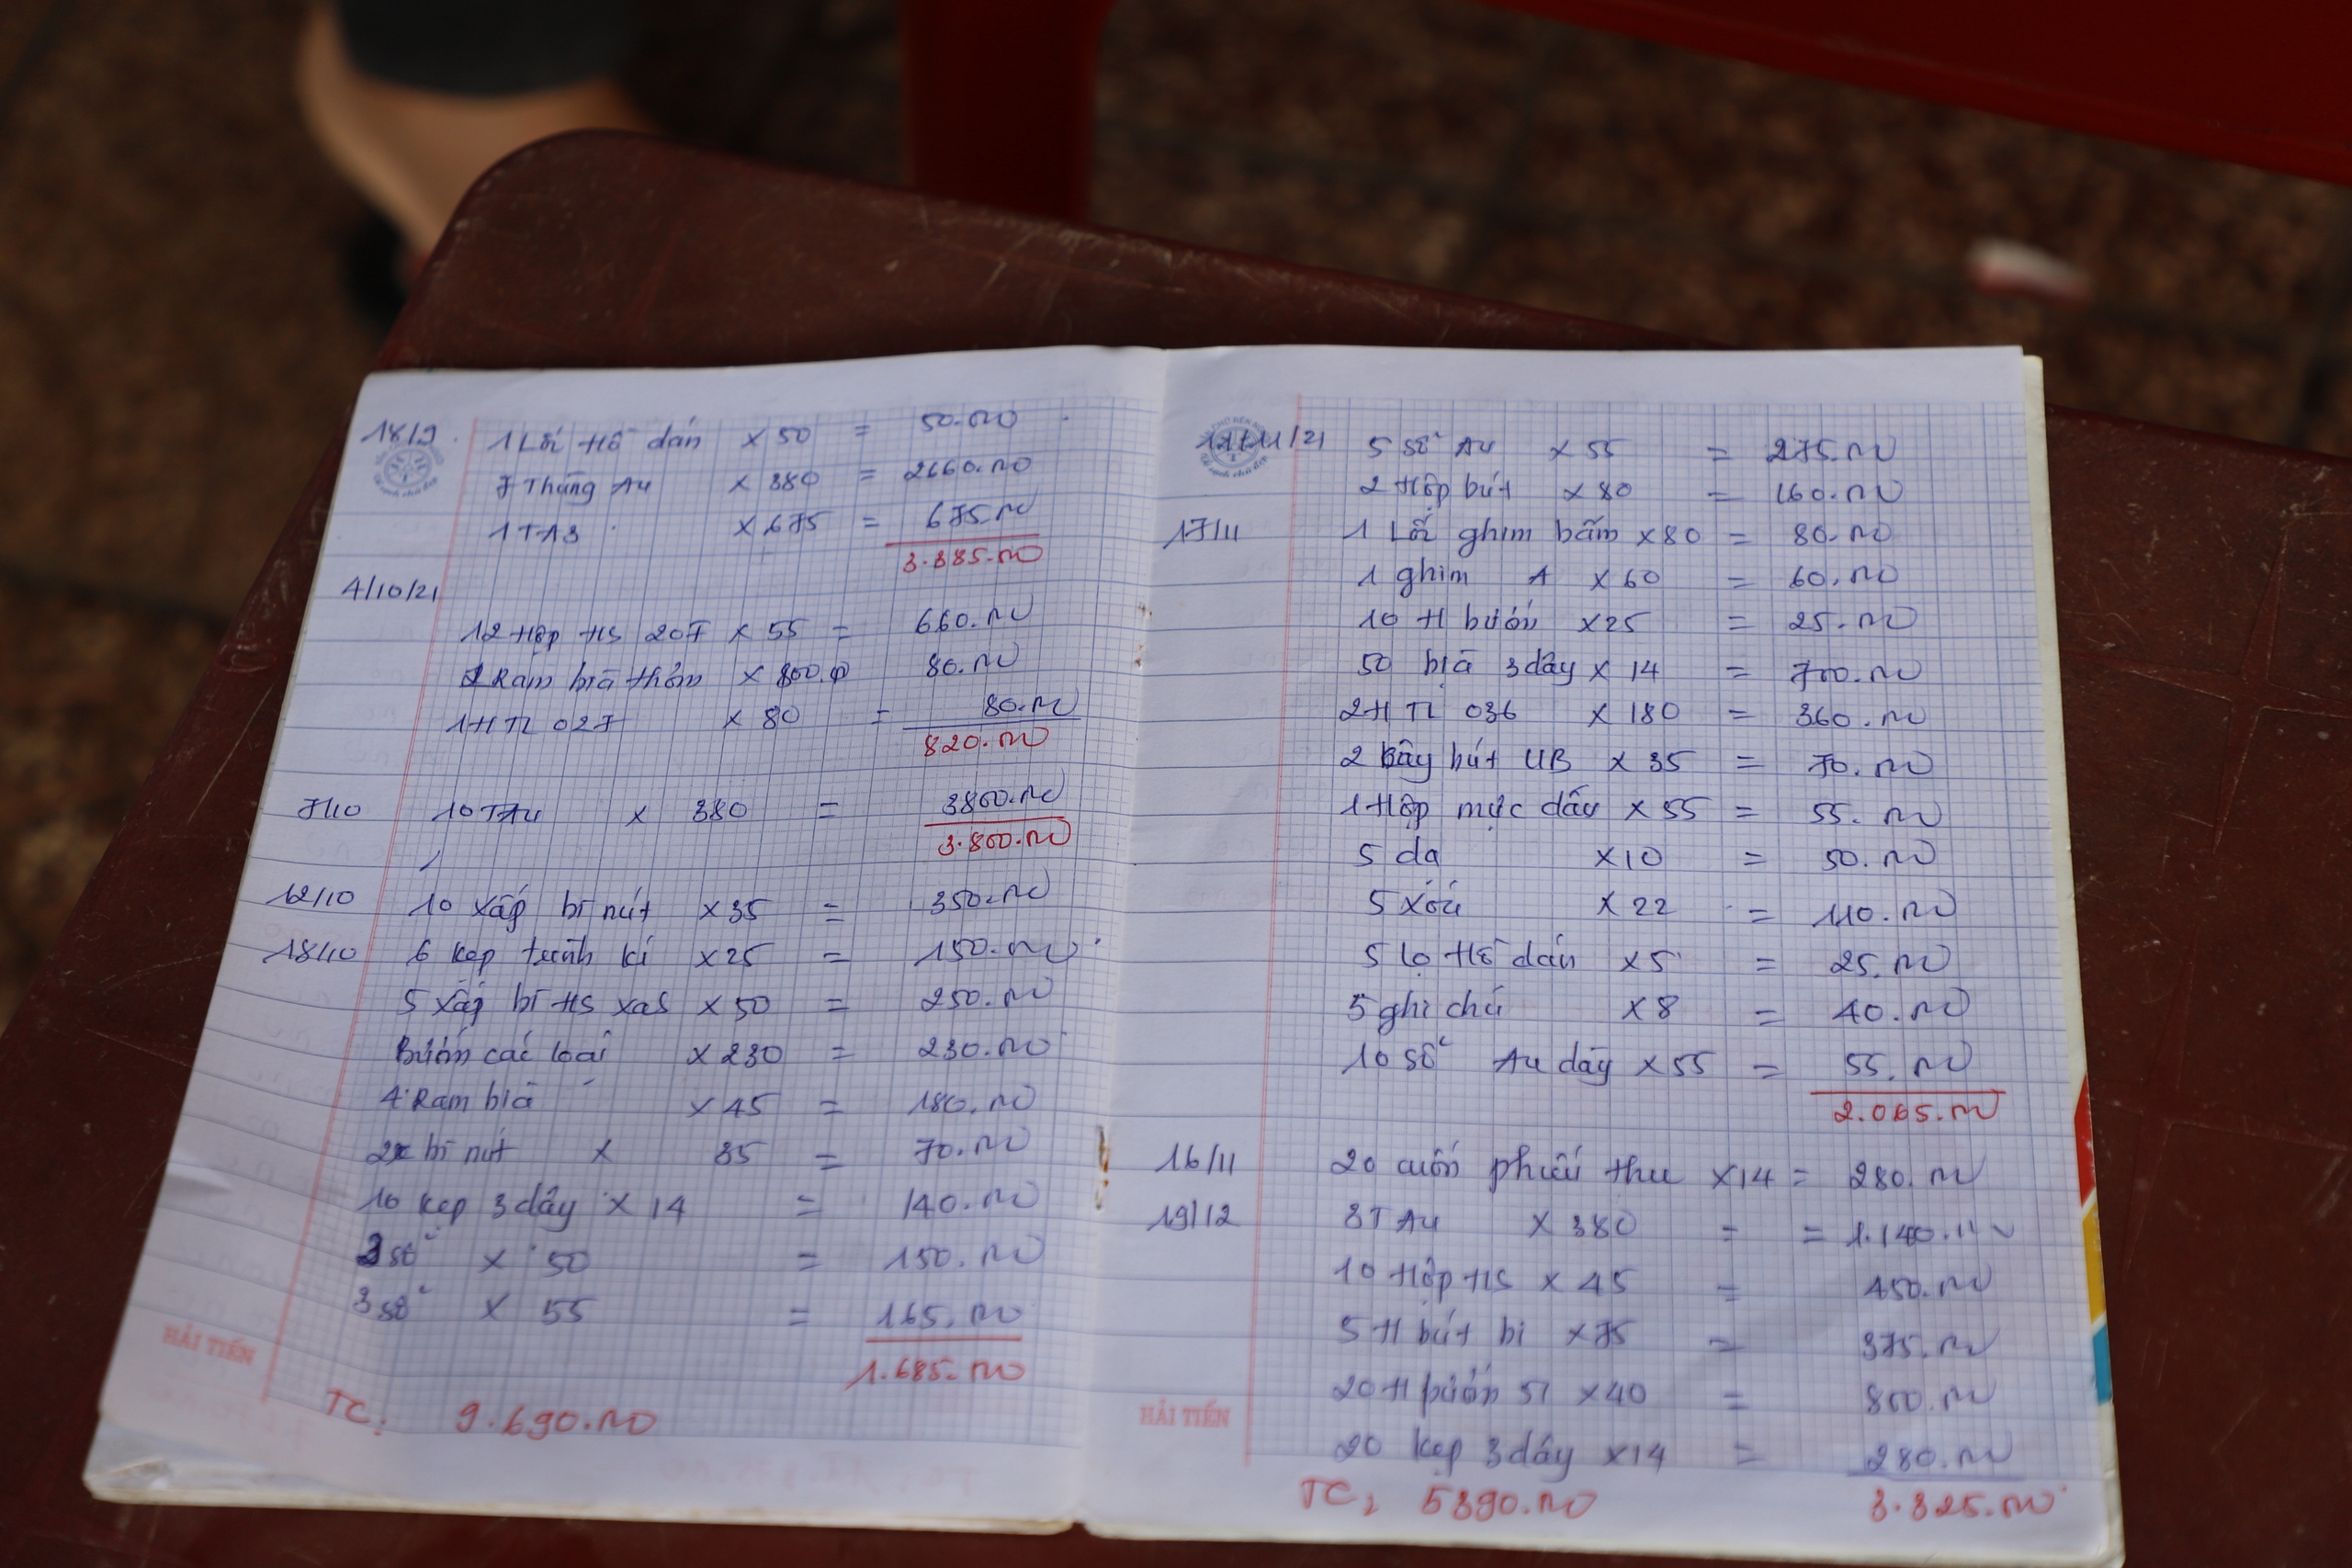 18/9 1 Lốc Hồ dán x 50 = 50.000
7 Thùng A4 x 380 = 2660.000
1 T A3 x 675 = 675.000
3.385.000
4/10/21
12 Hộp HS 207 x 55 = 660.000
1 Ram bìa thơm x 800.0 80.000
1 H TL 027 x 80 = 80.000
820.000
7/10 10 T A4 x 380 = 3800.000
3.800.000
12/10 10 xấp bì nút x 35 = 350.000
18/10 6 kẹp trình kí x 25 = 150.000
5 xấp bì HS xas x 50 = 250.000
Bướm các loại x 230 = 230.000
4 Ram bìa x 45 = 180.000
2x bì nút x 35 = 70.000
10 kẹp 3 dây x 14 = 140.000
3 sổ x 50 = 150.000
3 sổ x 55 = 165.000
1.685.000
HẢI TIẾN
TC: 9.690.000
11/11/21 5 sổ A4 x 55 = 275.000
2 Hộp bút x 80 = 160.000
17/11 1 Lốc ghim bấm x 80 = 80.000
1 ghim A x 60 = 60.000
10 H bướm x 25 = 25.000
50 bìa 3 dây x 14 = 700.000
2 H TL 036 x 180 = 360.000
2 cây bút UB x 35 = 70.000
1 Hộp mực dấu x 55 = 55.000
5 dạ x 10 = 50.000
5 xóa x 22 = 110.000
5 lọ Hồ dán x 5 = 25.000
5 ghi chú x 8 = 40.000
10 sổ A4 dày x 55 = 55.000
2.065.000
16/11 20 cuốn phiếu thu x 14 = 280.000
19/12 3 T A4 x 380 = = 1.140.000
10 Hộp HS x 45 = 450.000
5 H bút bi x 75 = 375.000
20 H bướm 51 x 40 = 800.000
HẢI TIẾN
20 kẹp 3 dây x 14 = 280.000
TC: 5390.000 3.325.000